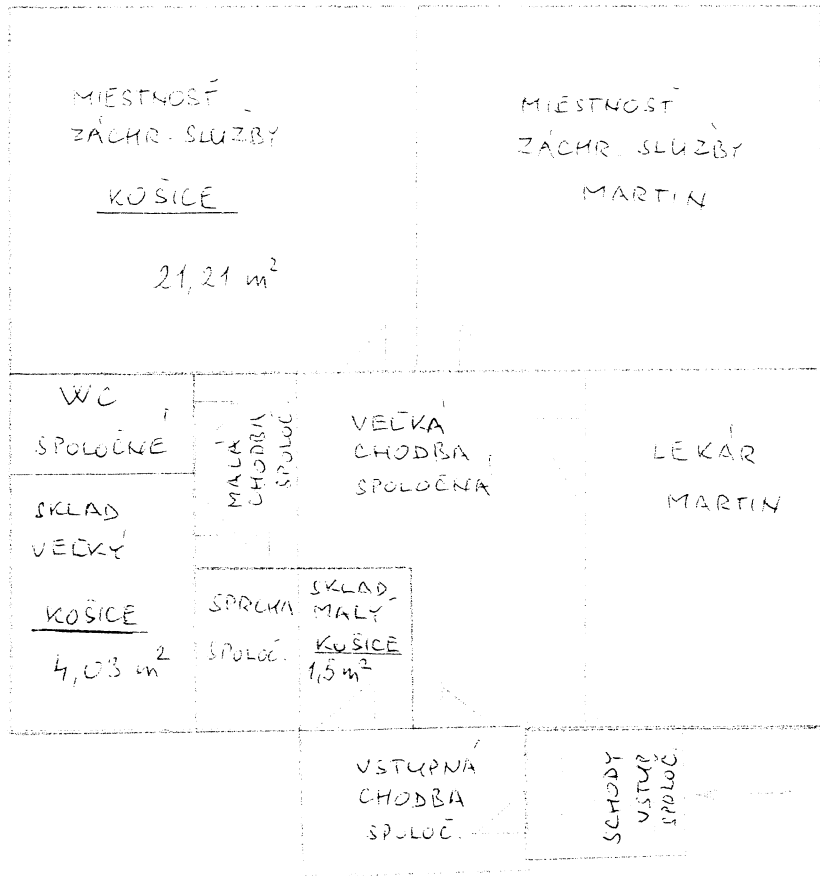 MIESTNOSŤ
ZÁCHR. SLUŽBY
KOŠICE
21,21 m²
MIESTNOSŤ
ZÁCHR. SLUŽBY
MARTIN
WC
SPOLOČNÉ
MALÁ
CHODBA
SPOLOČ.
VEĽKÁ
CHODBA
SPOLOČNÁ
LEKÁR
MARTIN
SKLAD
VEĽKÝ
KOŠICE
4,03 m²
SPRCHA
SPOLOČ.
SKLAD
MALÝ
KOŠICE
1,5 m²
VSTUPNÁ
CHODBA
SPOLOČ.
SCHODY
VSTUP
SPOLOČ.